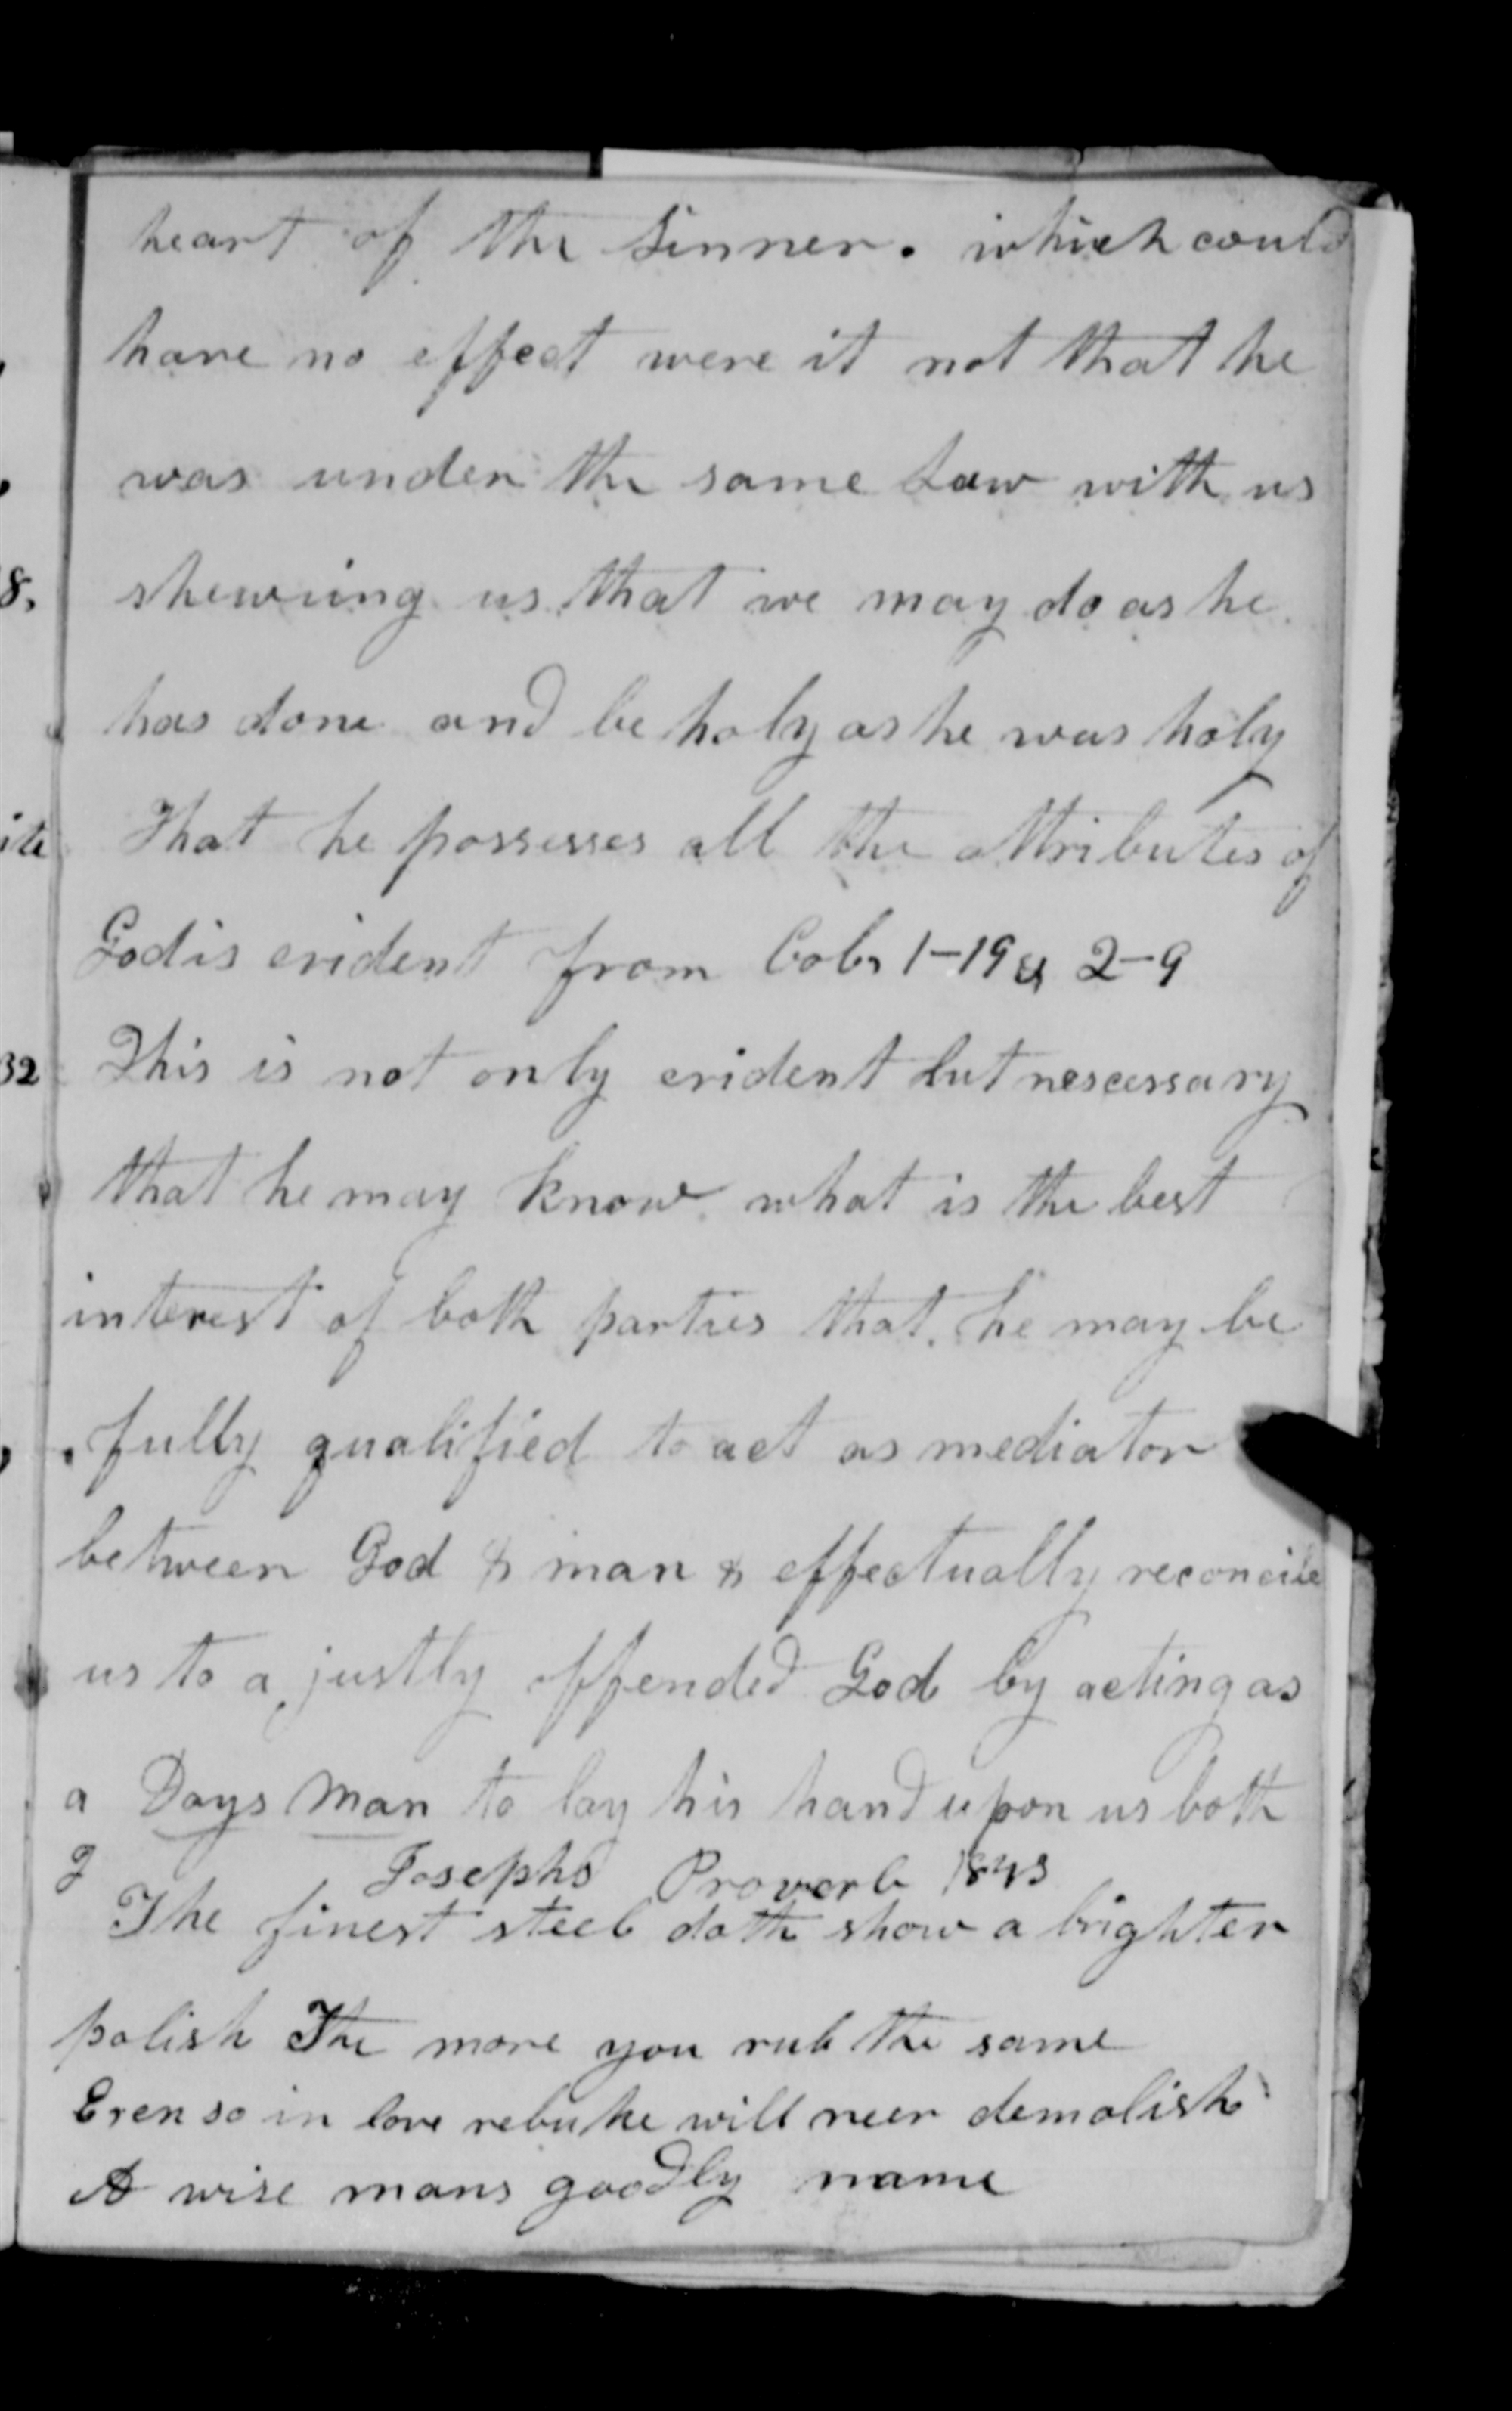 heart of the Sinner. which could
have no effect were it not that he
was under the same Law with us
shewing us that we may do as he
has done and be holy as he was holy
That he possesses all the attributes of
God is evident from Col, 1-19 & 2-9
This is not only evident but nescessary
that he may know what is the best
interest of both parties that he may be
fully qualified to act as mediator
between God & man & effectually reconcile
us to a justly offended God by acting as
a Days Man to lay his hand upon us both
Josephs Proverb 1843
The finest steel doth show a brighter
polish The more you rub the same
Even so in love rebuke will neer demolish
A wise mans goodly name
8,
ite
32